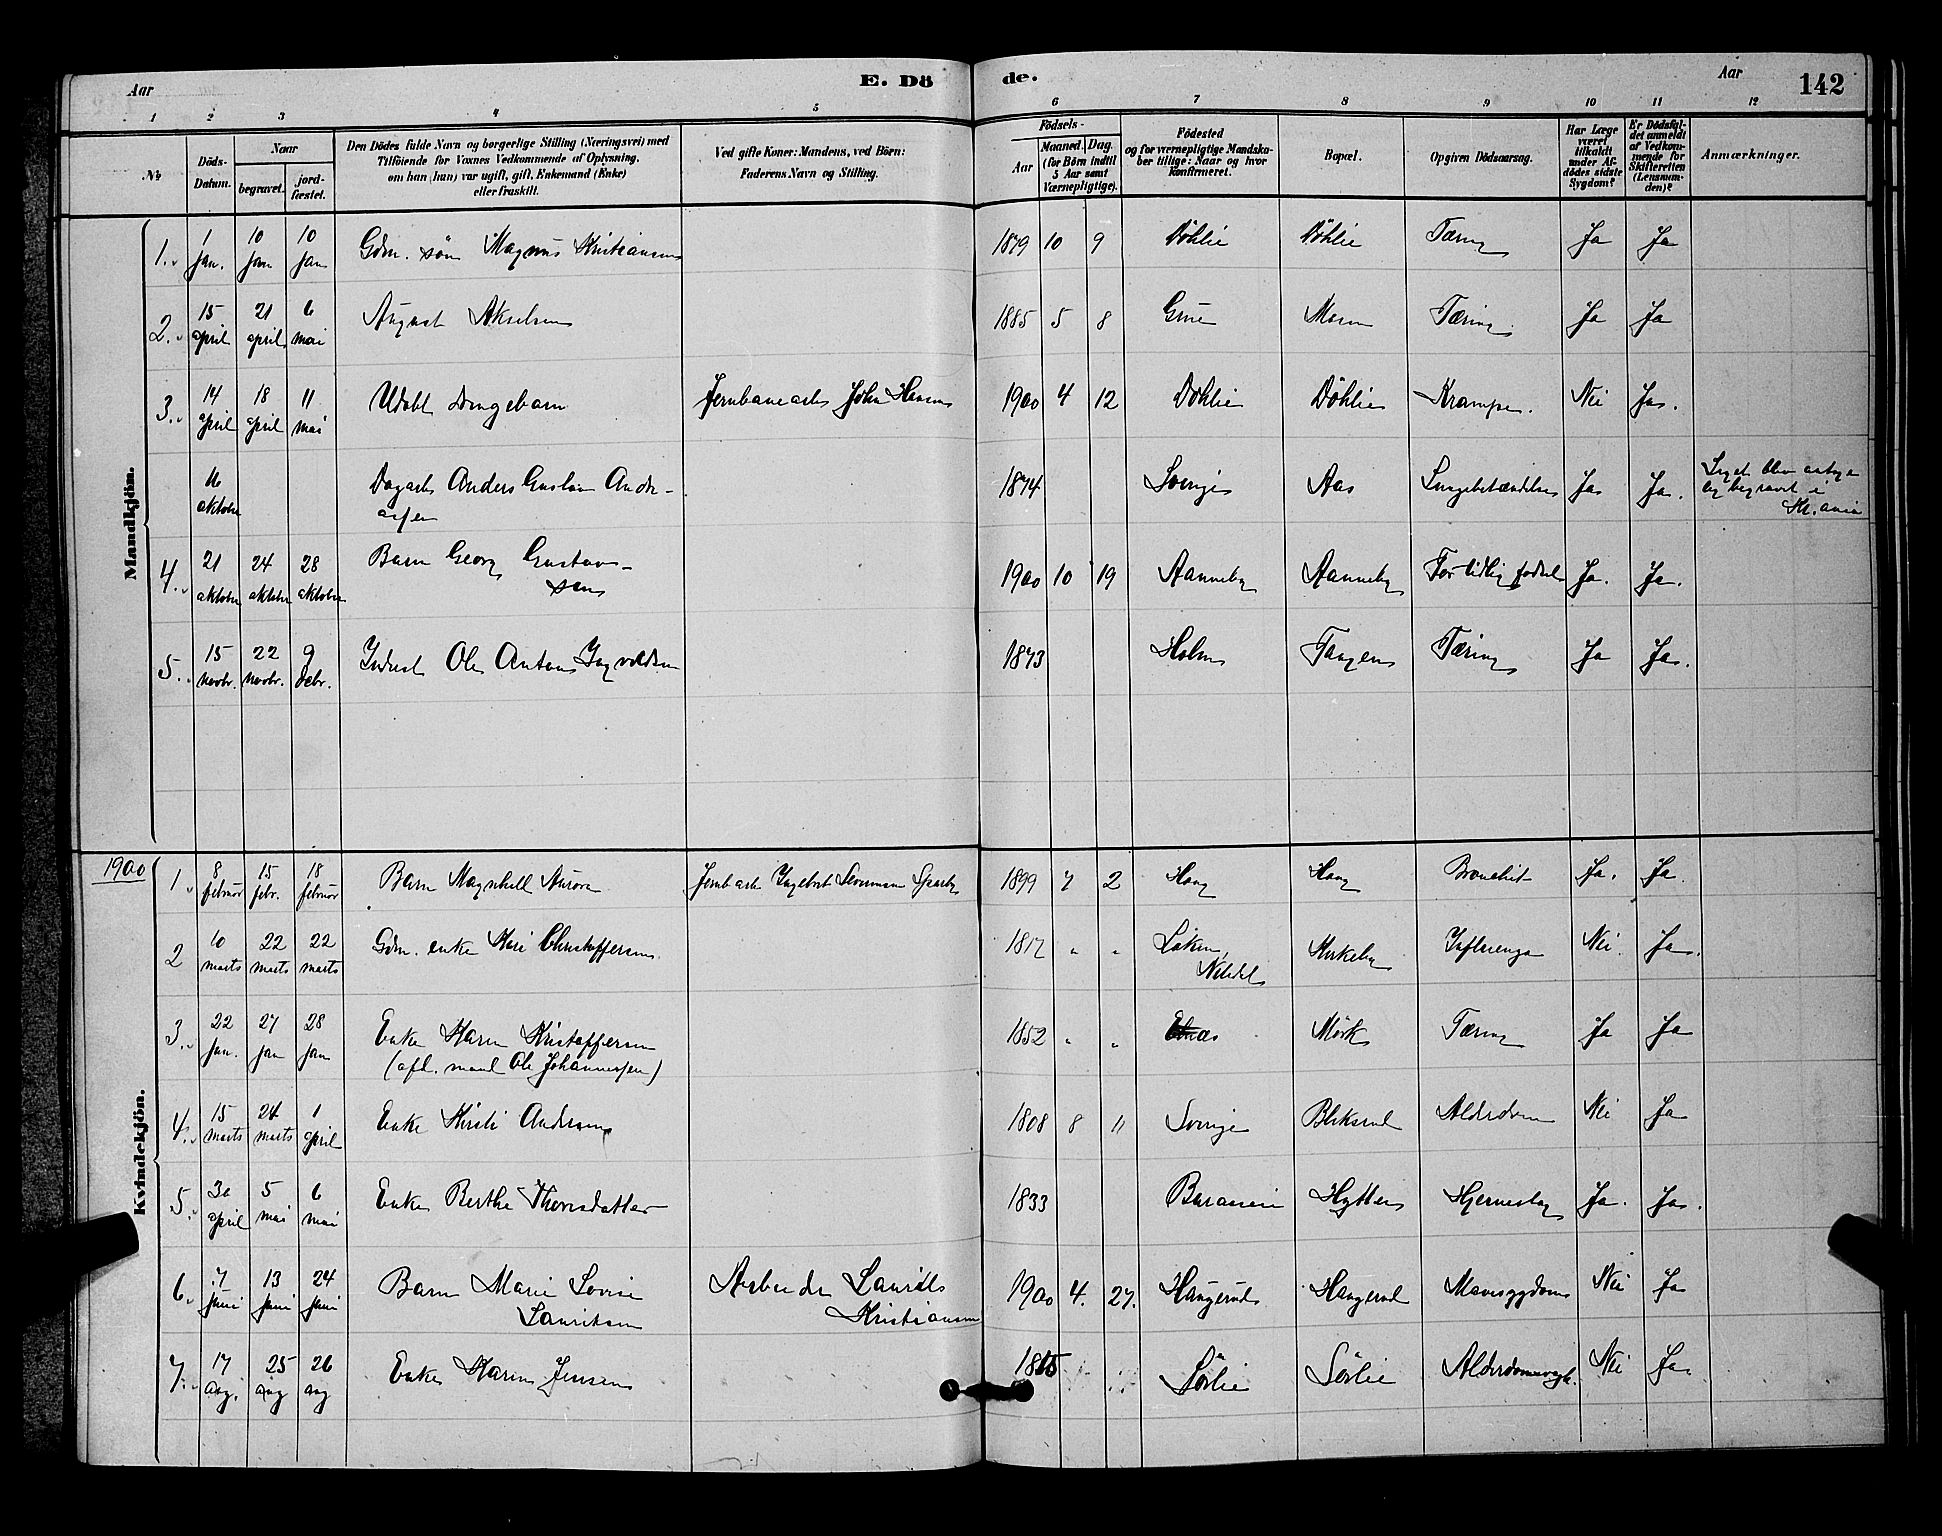 Aar
E. Dö
de.
Aar
142
1 2 3 4 5 6 7 8 9 10 11 12
№
Döds-
Datum.
Naar
begravet.
jord-
festet.
Den Dödes fulde Navn og borgerlige Stilling (Næringsvei) med
Tilföiende for Voxnes Vedkommende af Oplysning,
om han (hun) var ugift, gift, Enkemand (Enke)
eller fraskilt.
Ved gifte Koner: Mandens, ved Börn:
Faderens Navn og Stilling.
Födsels-
Aar
Maaned. Dag.
(for Börn indtil
5 Aar samt
Værnepligtige).
Födested
og for værnepligtige Mandska-
ber tillige: Naar og hvor
konfirmeret.
Bopæl.
Opgiven Dödsaarsag.
Har Læge
været
tilkaldt
under Af-
dödes sidste
Sygdom?
Er Dödsfal-
det anmeldt
af Vedkom-
mende for
Skifteretten
(Lensman-
den)?
Anmærkninger.
Mandkjön.
1. 1 Jan. 10 Jan 10 Jan Gdm. sön Magnus Kristiansen 1879 10 9 Döhlie Döhlie Tæring Ja Ja
2. 15 april 21 april 6 mai August Akselsen 1885 5 8 Grue Moen Tæring Ja Ja
3. 14 april 18 april 11 mai Udöbt Drengebarn Jernbanearb John Hansen 1900 4 12 Döhlie Döhlie Krampe. Nei Ja.
16 oktober Dagarb Anders Gustav Andre-
assen 1874 Sverige Aas Lungebetændelse Ja Ja.
Liget blev
og begravet i
Kr.ania
4. 21 oktober 24 oktober 28 oktober Barn Georg Gustav-
sen 1900 10 19 Aanneby Aanneby For tidlig fødsel Ja. Ja.
5. 15 novbr. 22 novbr. 9 debr. Inderst Ole Anton Ingvoldsen 1873 Holm Tangen Tæring Ja Ja.
1900
Kvindekjön.
1 8 februar 15 febr. 18 februar Barn Magnhild Aurora Jernbarb Ingebret Severinsen 1899 7 2 Haug Haug Bronchit Ja. Ja.
2 10 marts 22 marts 22 marts Gdm. enke Kari Christoffersen 1817 " " Løken
Kirkeby Influenza Nei. Ja.
3. 22 Jan. 27 Jan 28 Jan Enke Karen Kristoffersen
(afd. mand Ole Johannessen) 1852 " " Mørk Tæring Ja Ja
4. 15 marts 24 marts 1 april Enke Kirsti Andersen 1808 8 11 Sverige Bliksrud Alderdom Nei Ja
5. 30 april 5 mai 6 mai Enke Berthe Thorsdatter 1833 Hytten Hjerneslag Ja. Ja.
6. 7 Juni 13 Juni 24 Juni Barn Marie Lovise
Lauritsen Arbeider Laurits
Kristiansen 1900 4. 27. Haugerud Haugerud Mavesygdom Nei Ja
7. 17 aug. 25 aug 26 aug Enke Karen Jensen 1815 Sörlie Sörlie Nei Ja